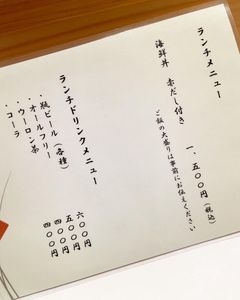 ランチメニュー
海鮮丼 赤だし付き 一、五〇〇円(税込)
ご飯の大盛りは事前にお伝えください
ランチドリンクメニュー
・瓶ビール(各種) 六〇〇円
・オールフリー 五〇〇円
・ウーロン茶 四〇〇円
・コーラ 四〇〇円